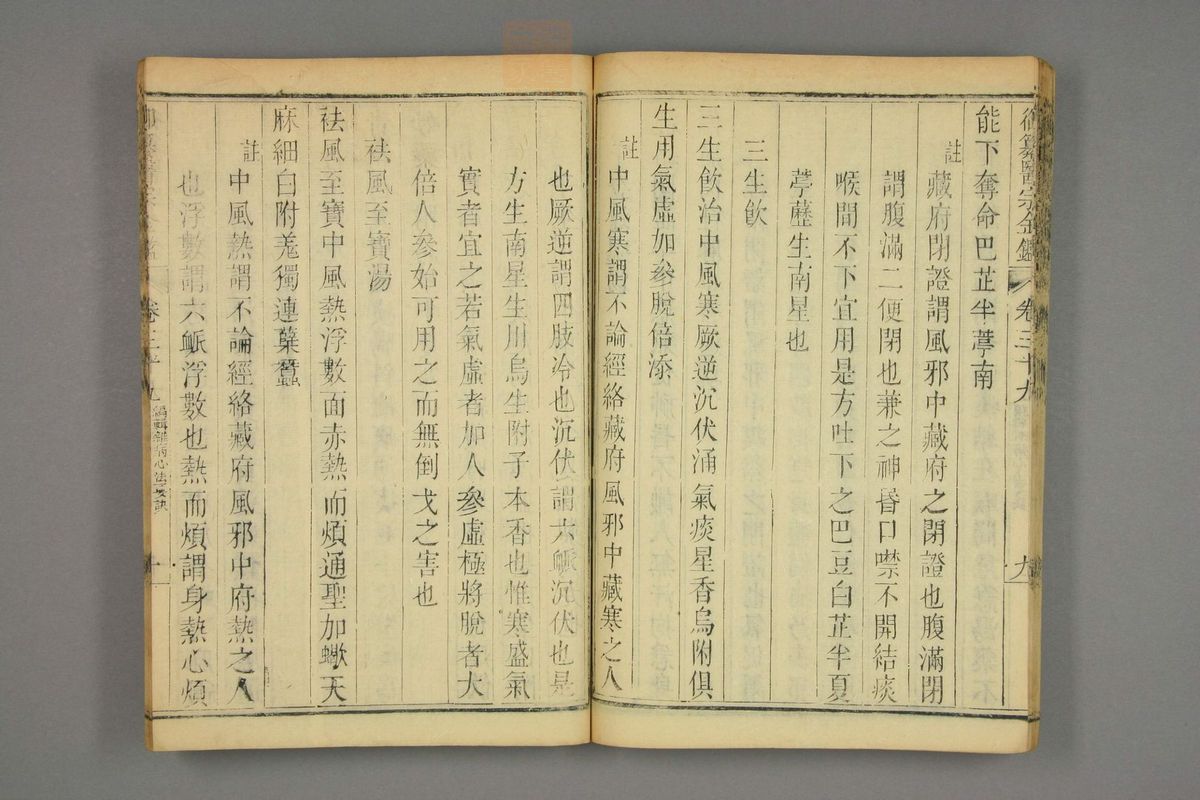 御纂醫宗金鑑
卷三十九
九
能下奪命巴芷半葶南
註
藏府閉證謂風邪中藏府之閉證也腹滿閉
謂腹滿二便閉也兼之神昏口噤不開結痰
喉間不下宜用是方吐下之巴豆白芷半夏
葶藶生南星也
三生飲
三生飲治中風寒厥逆沉伏涌氣痰星香烏附俱
生用氣虛加參脫倍添
註
中風寒謂不論經絡藏府風邪中藏寒之人
也厥逆謂四肢冷也沉伏謂六䘑沉伏也是
方生南星生川烏生附子木香也惟寒盛氣
實者宜之若氣虛者加人參虛極將脫者大
倍人參始可用之而無倒戈之害也
祛風至寶湯
祛風至寶中風熱浮數面赤熱而煩通聖加蠍天
麻細白附羗獨連蘗蠶
註
中風熱謂不論經絡藏府風邪中府熱之人
也浮數謂六䘑浮數也熱而煩謂身熱心煩
卷三十九
編輯雜病心法要訣
十